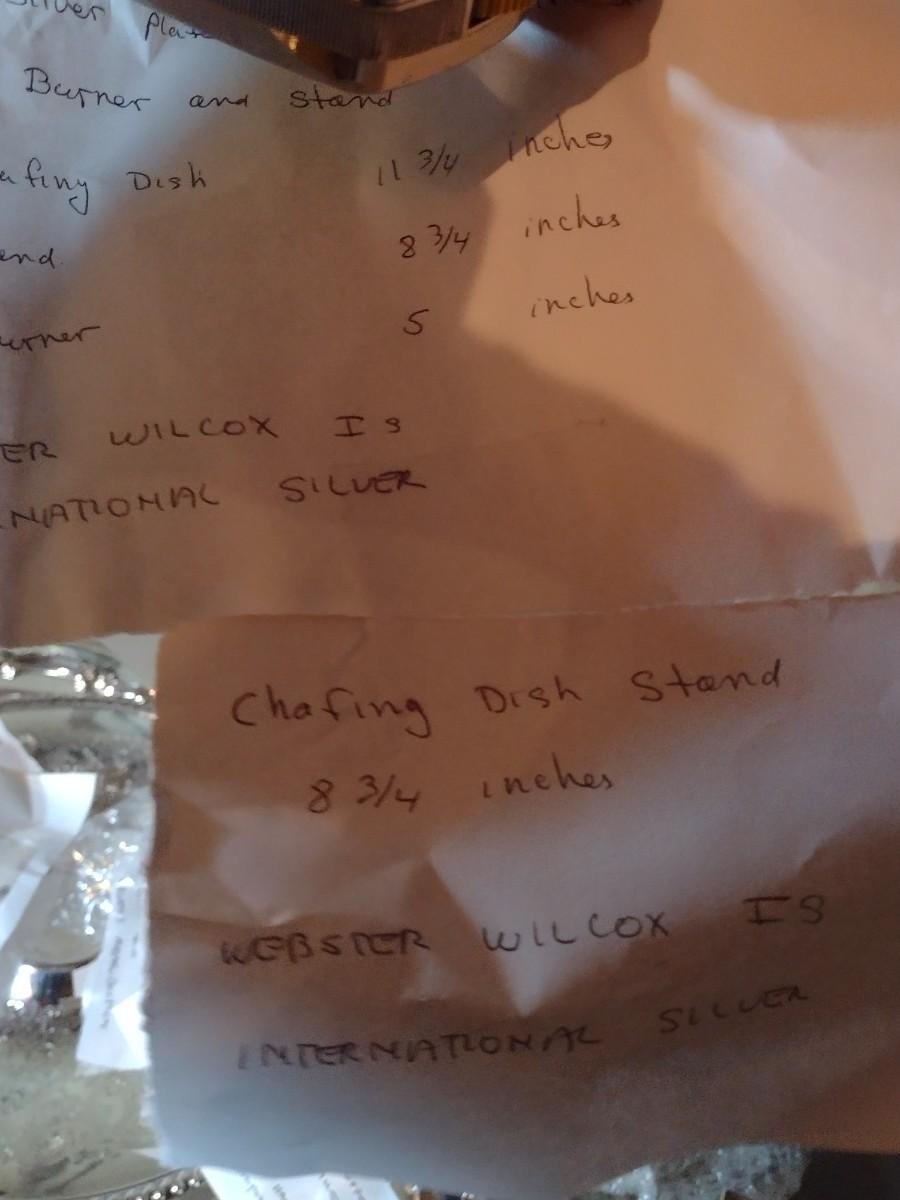 Silver Plate
Burner and Stand
afing Dish 11 3/4 inches
end. 8 3/4 inches
urner 5 inches
ER WILCOX IS
RNATIONAL SILVER
Chafing Dish Stand
8 3/4 inches
WEBSTER WILCOX IS
INTERNATIONAL SILVER